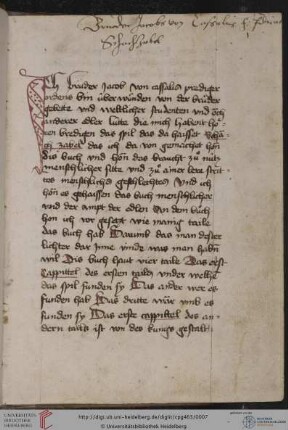 Bruder Jacobs von Cassalis
Schachzabel
Ich bruder Jacob von cassalis prediger
ordens bin überwunden von der brüder
gebette und weltlicher studenten und och
anderer edler lütte die mich habent
hören bredigen das spil das da haisset
zabel das ich da von gemachet hon
dis buch und hon das braucht zu nutz
menschlicher sitte und zu ainer
menschlichs geschlechtes Und ich
hon es gehaissen das buch menschlicher
und der ampt der edlen Von dem buch
hon ich vor gesagt wie manig taile
das buch hab Darumb das man dester
lichter dar Inne vinde was man haben
wil Dis buch haut vier taile Das erst
Cappittel des ersten tailes under welhem
das spil funden sy Das ander wer es
funden hab Das dritte war umb es
funden sy Das erste cappittel des an
dern tails ist von des kungs gestalt
http://digi.ub.uni-heidelberg.de/diglit/cpg493/0007
© Universitätsbibliothek Heidelberg
UNIVERSITÄTS-
BIBLIOTHEK
HEIDELBERG